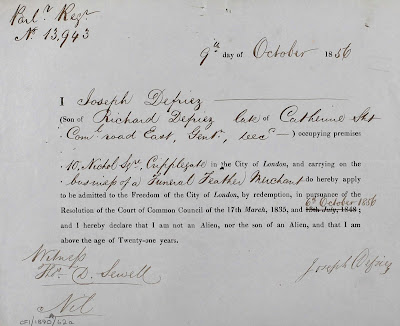 Parlr. Regr.
No. 13,943
9th day of October 1856
I Joseph Defriez
(Son of Richard Defriez late of Catherine Stt
Coml. road East, Gentn., Decd. ) occupying premises
10, Nichol Sqr., Cripplegate in the City of London, and carrying on the
business of a Funeral Feather Merchant do hereby apply
to be admitted to the Freedom of the City of London, by redemption, in pursuance of the
6th October 1856
Resolution of the Court of Common Council of the 17th March, 1835, and 13th July, 1848 ;
and I hereby declare that I am not an Alien, nor the son of an Alien, and that I am
above the age of Twenty-one years.
Witness
Thos. D. Sewell
Joseph Defriez
Nil
CF1/1840/62a